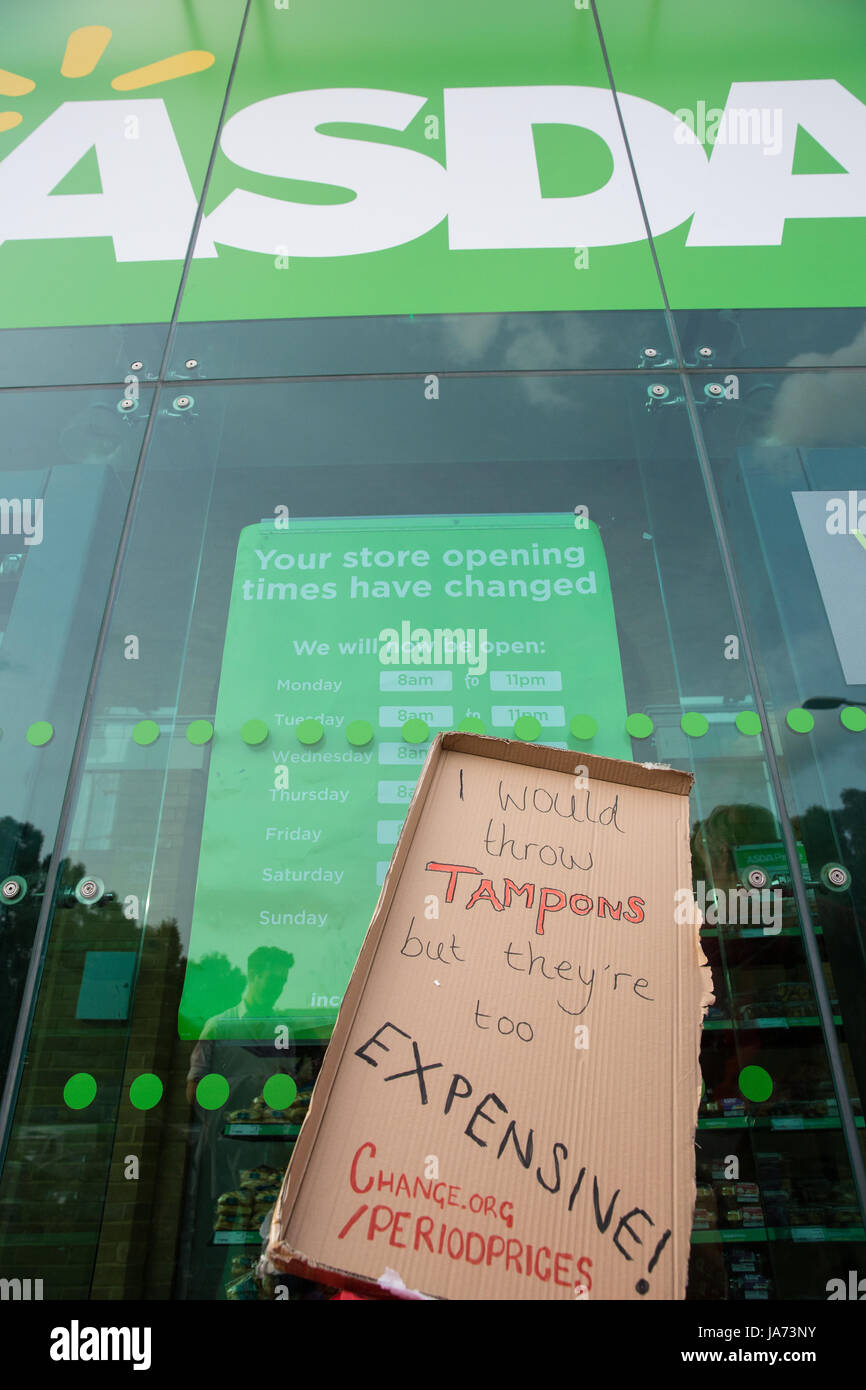 ASDA
Your store opening
times have changed
We will now be open:
Monday 8am to 11pm
Tuesday 8am to 11pm
Wednesday 8am
Thursday
Friday
Saturday
Sunday
ASDA
I would
throw
TAMPONS
but they're
too
EXPENSIVE!
CHANGE.ORG
/PERIODPRICES
alamy
alamy stock photo
JA73NY
www.alamy.com